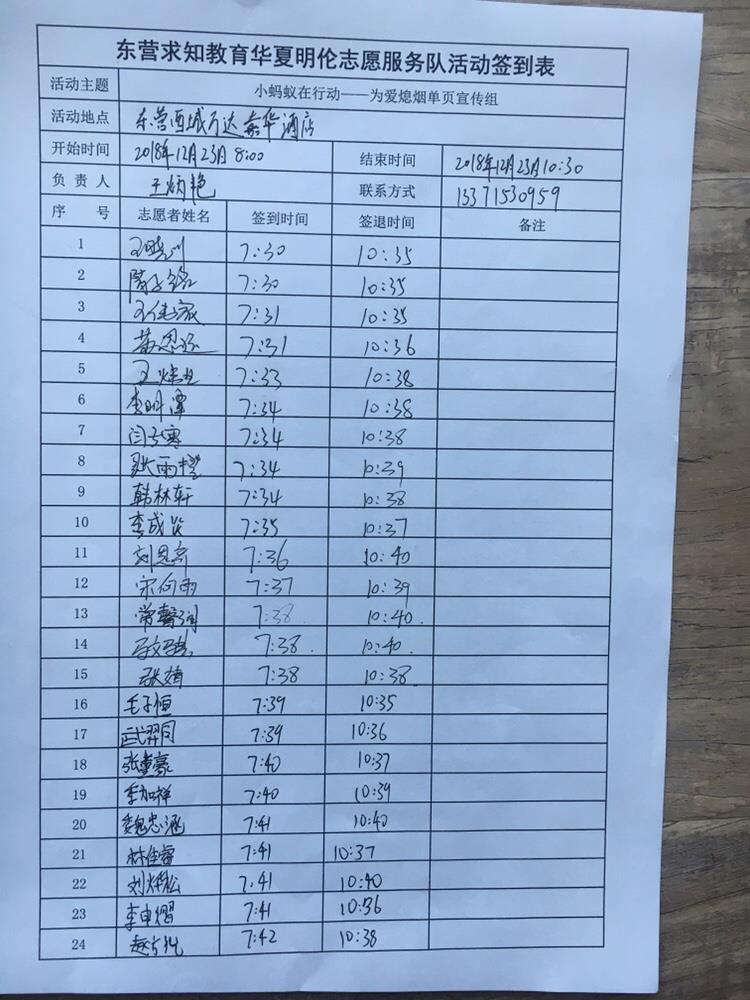 东营求知教育华夏明伦志愿服务队活动签到表
活动主题 小蚂蚁在行动——为爱熄烟单页宣传组
活动地点 东营西城万达嘉华酒店
开始时间 2018年12月23日 8:00 结束时间 2018年12月23日 10:30
负责人 王炳艳 联系方式 13371530959
序号 志愿者姓名 签到时间 签退时间 备注
1 7:30 10:35
2 7:30 10:35
3 王佳家 7:31 10:35
4 7:31 10:36
5 7:33 10:38
6 李明潭 7:34 10:38
7 闫子寒 7:34 10:38
8 7:34 10:39
9 韩林轩 7:34 10:38
10 7:35 10:37
11 刘恩齐 7:36 10:40
12 宋向雨 7:37 10:39
13 7:38 10:40
14 7:38 10:40
15 张婧 7:38 10:38
16 毛子恒 7:39 10:35
17 武羿同 7:39 10:36
18 7:40 10:37
19 李加祥 7:40 10:39
20 魏忠涵 7:41 10:40
21 林佳睿 7:41 10:37
22 7:41 10:40
23 李申熠 7:41 10:36
24 7:42 10:38